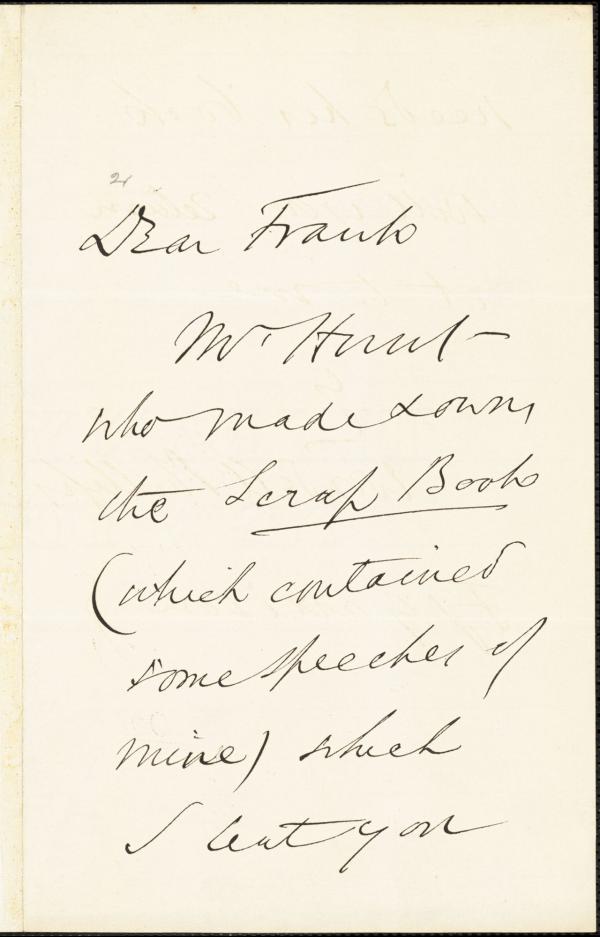 Dear Frank
Mr Hunt
who made & owns
the Scrap Book
(which contained
some speeches of
mine) which
I lent you